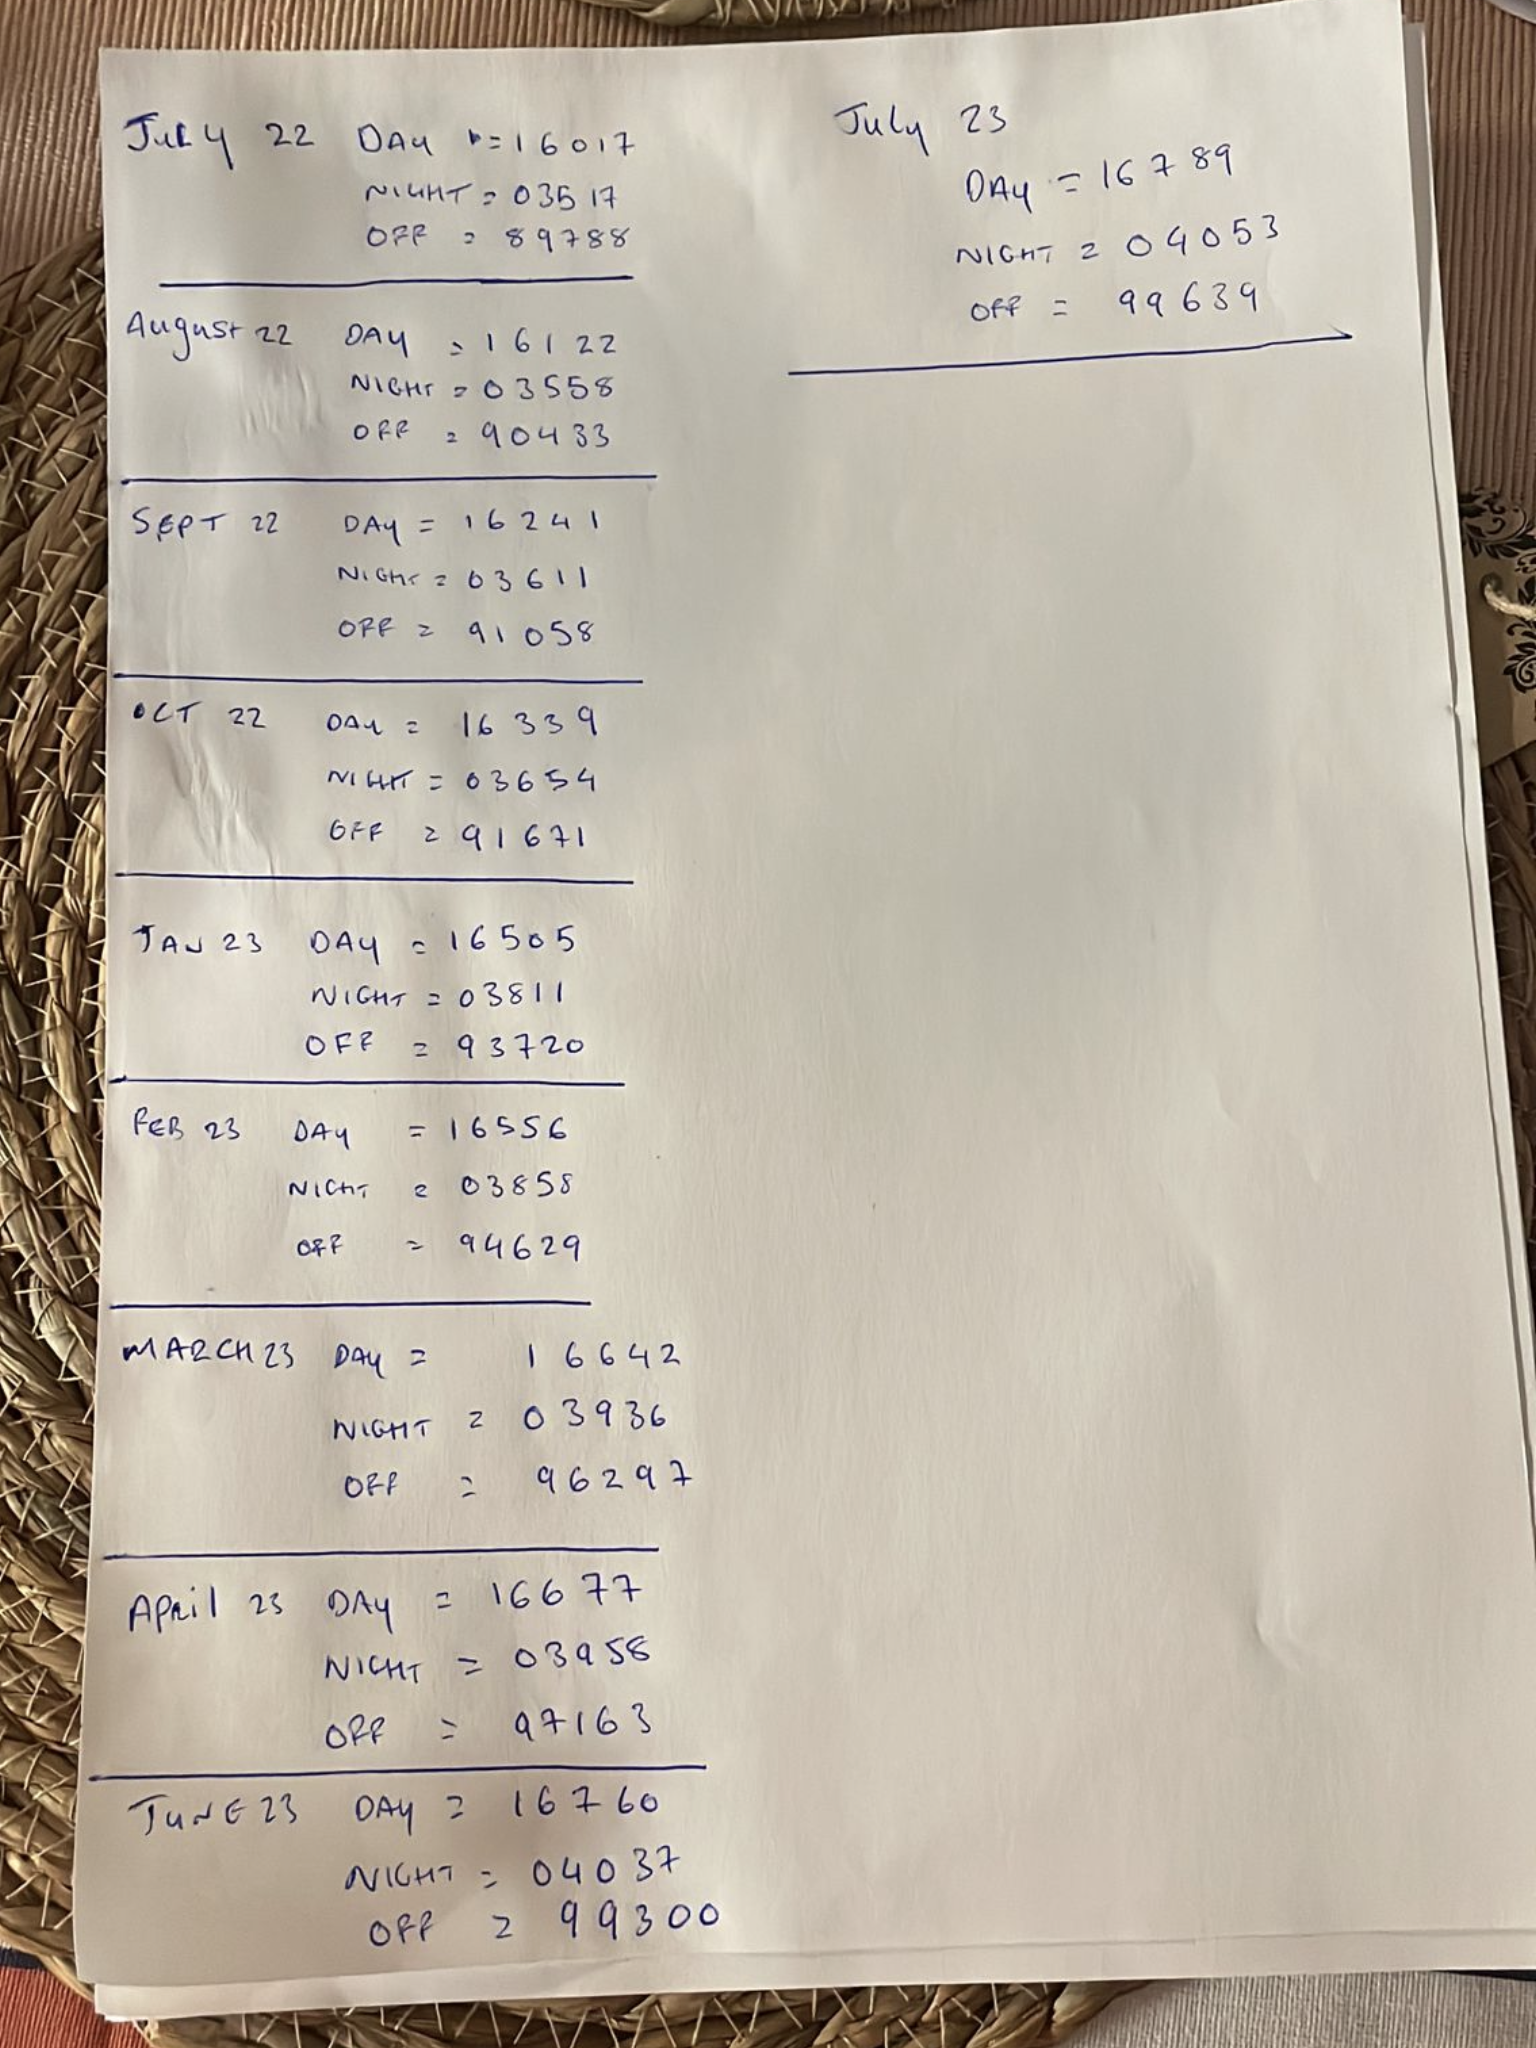 JULY 22 DAY = 16017
NIGHT = 03517
OFF = 89788
August 22 DAY = 16122
NIGHT = 03558
OFF = 90433
SEPT 22 DAY = 16241
NIGHT = 03611
OFF = 91058
OCT 22 DAY = 16339
NIGHT = 03654
OFF = 91671
JAN 23 DAY = 16505
NIGHT = 03811
OFF = 93720
FEB 23 DAY = 16556
NIGHT = 03858
OFF = 94629
MARCH 23 DAY = 16642
NIGHT = 03936
OFF = 96297
APRil 23 DAY = 16677
NIGHT = 03958
OFF = 97163
JUNE 23 DAY = 16760
NIGHT = 04037
OFF = 99300
July 23
DAY = 16789
NIGHT = 04053
OFF = 99639